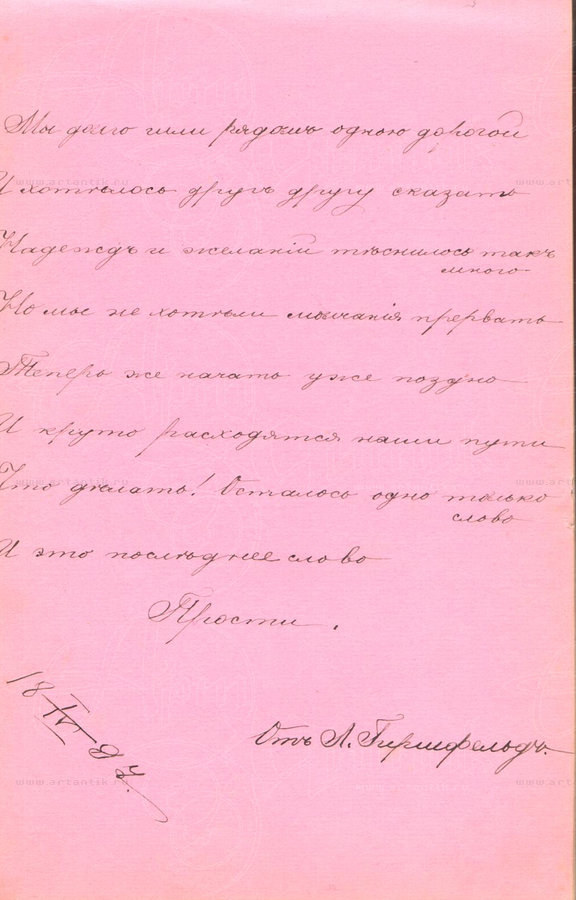 Мы долго шли рядомъ одною дорогой
И хотѣлось другъ другу сказать
Надеждъ и желаній тѣснилось такъ
много
Но мы не хотѣли молчанія прервать
Теперь же начать уже поздно
И круто расходятся наши пути
Что дѣлать! Осталось одно только
слово
И это послѣднее слово
Прости.
18 IV 97.
Отъ Л. Гиршфельдъ.
www.artantik.ru